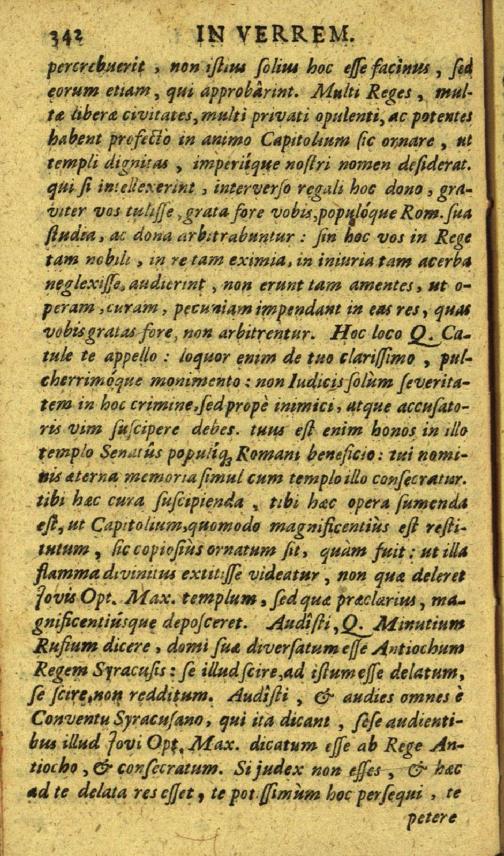 342 IN VERREM.
percrebuerit , non istius solius hoc esse facinus , sed
eorum etiam, qui approbârint. Multi Reges , mul-
tæ liberæ civitates, multi privati opulenti, ac potentes
habent profecto in animo Capitolium sic ornare , ut
templi dignitas , imperiique nostri nomen desiderat.
qui si intellexerint , interverso regali hoc dono , gra-
viter vos tulisse , grata fore vobis, populóque Rom. sua
studia, ac dona arbitrabuntur : sin hoc vos in Rege
tam nobili , in re tam eximia, in iniuria tam acerba
neglexisse, audierint , non erunt tam amentes, ut o-
peram, curam, pecuniam impendant in eas res, quas
vobis gratas fore, non arbitrentur. Hoc loco Q. Ca-
tule te appello : loquor enim de tuo clarissimo , pul-
cherrimóque monimento : non Iudicis solùm severita-
tem in hoc crimine, sed propè inimici, atque accusato-
ris vim suscipere debes. tuus est enim honos in illo
templo Senatûs populíq; Romani beneficio : tui nomi-
nis æterna memoria simul cum templo illo consecratur.
tibi hæc cura suscipienda , tibi hæc opera sumenda
est, ut Capitolium, quomodo magnificentiùs est resti-
tutum , sic copiosiùs ornatum sit, quàm fuit : ut illa
flamma divinitus extitisse videatur , non quæ deleret
Jovis Opt. Max. templum, sed quæ præclarius, ma-
gnificentiúsque deposceret. Audîsti, Q. Minutium
Rufium dicere, domi suæ diversatum esse Antiochum
Regem Syracusis : se illud scire, ad istum esse delatum,
se scire, non redditum. Audîsti , & audies omnes è
Conventu Syracusano, qui ita dicant , sese audienti-
bus illud Jovi Opt. Max. dicatum esse ab Rege An-
tiocho , & consecratum. Si judex non esses , & hæc
ad te delata res esset , te potissimùm hoc persequi , te
petere